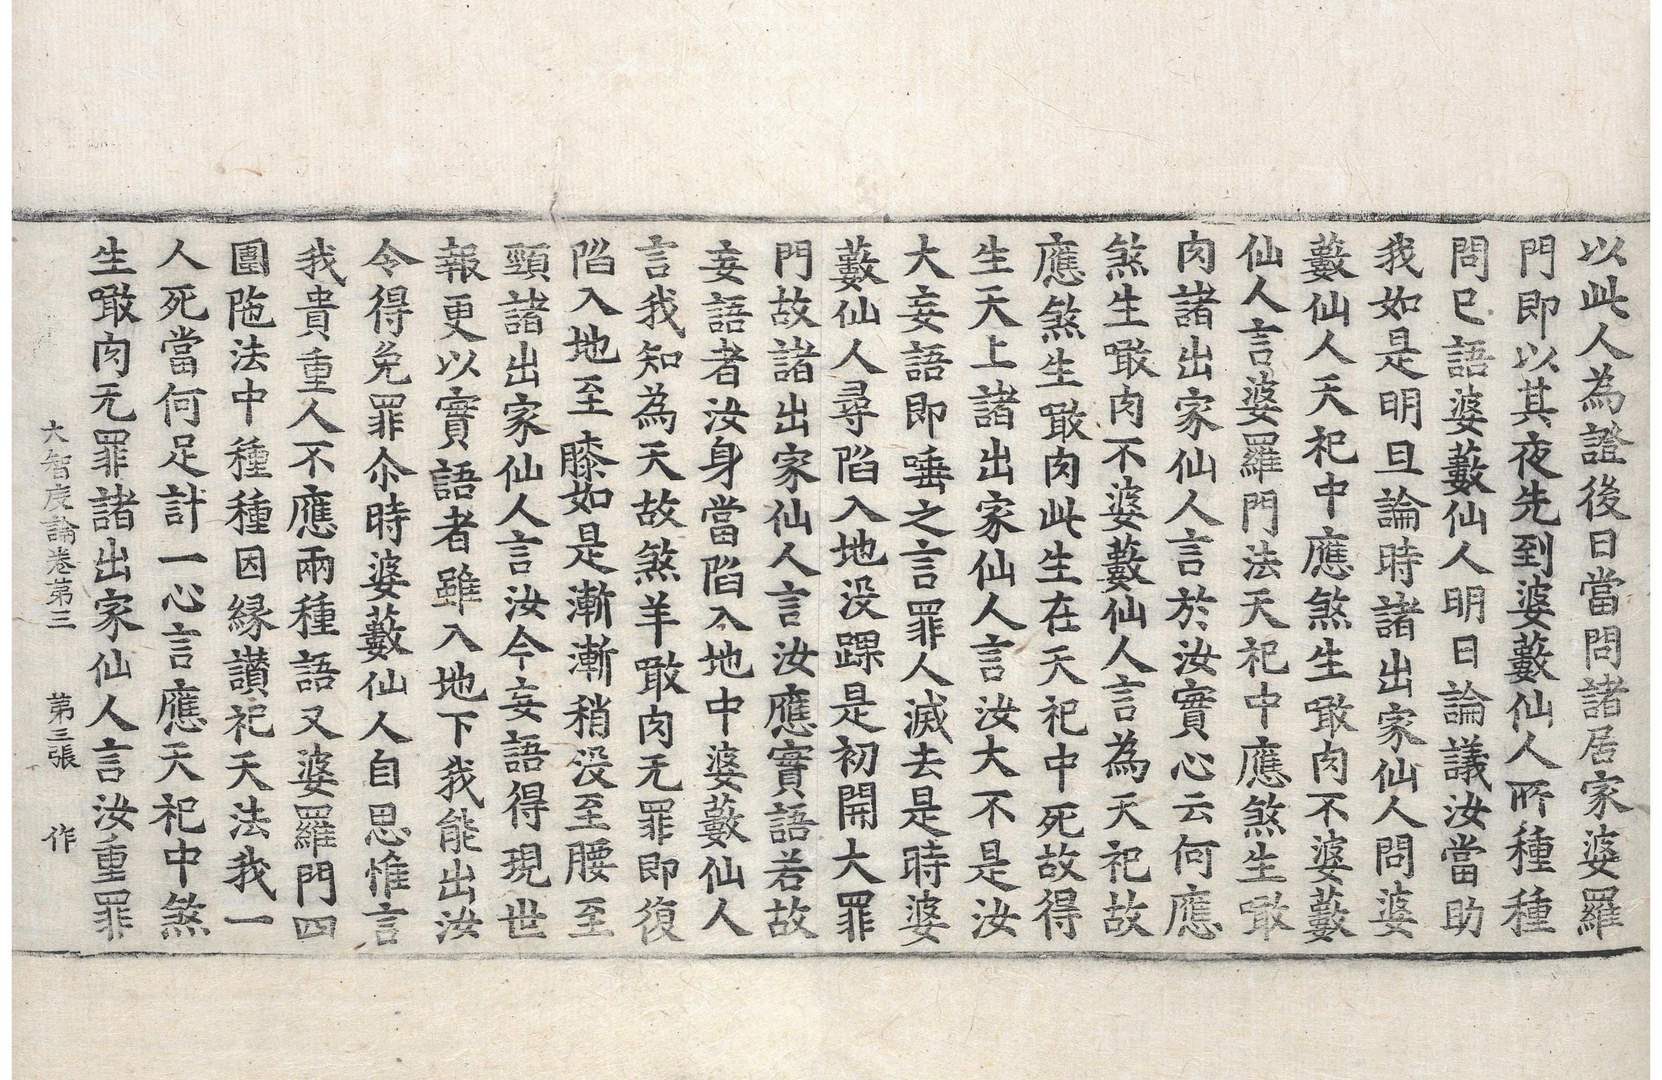 以此人為證後日當問諸居家婆羅
門即以其夜先到婆藪仙人所種種
問已語婆藪仙人明日論議汝當助
我如是明旦論時諸出家仙人問婆
藪仙人天祀中應煞生噉肉不婆藪
仙人言婆羅門法天祀中應煞生噉
肉諸出家仙人言於汝實心云何應
煞生噉肉不婆藪仙人言為天祀故
應煞生噉肉此生在天祀中死故得
生天上諸出家仙人言汝大不是汝
大妄語即唾之言罪人滅去是時婆
藪仙人尋陷入地没踝是初開大罪
門故諸出家仙人言汝應實語若故
妄語者汝身當陷入地中婆藪仙人
言我知為天故煞羊噉肉无罪即復
陷入地至膝如是漸漸稍没至腰至
頸諸出家仙人言汝今妄語得現世
報更以實語者雖入地下我能出汝
令得免罪尒時婆藪仙人自思惟言
我貴重人不應兩種語又婆羅門四
圍陁法中種種因緣讃祀天法我一
人死當何足計一心言應天祀中煞
生噉肉无罪諸出家仙人言汝重罪
大智度論卷第三 第三張 作